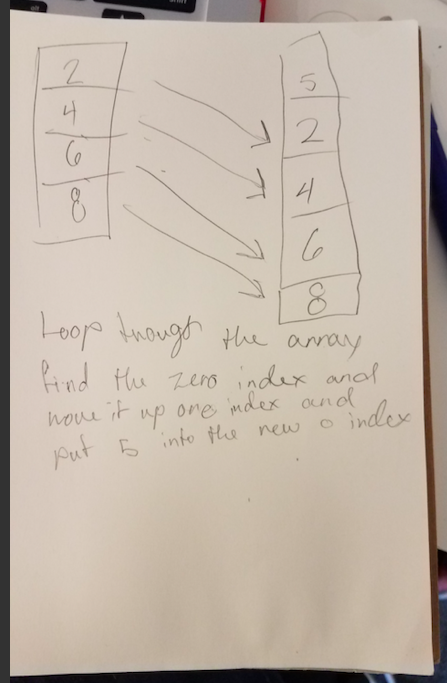 2
4
6
8
5
2
4
6
8
Loop though the array
find the zero index and
move it up one index and
put 5 into the new 0 index